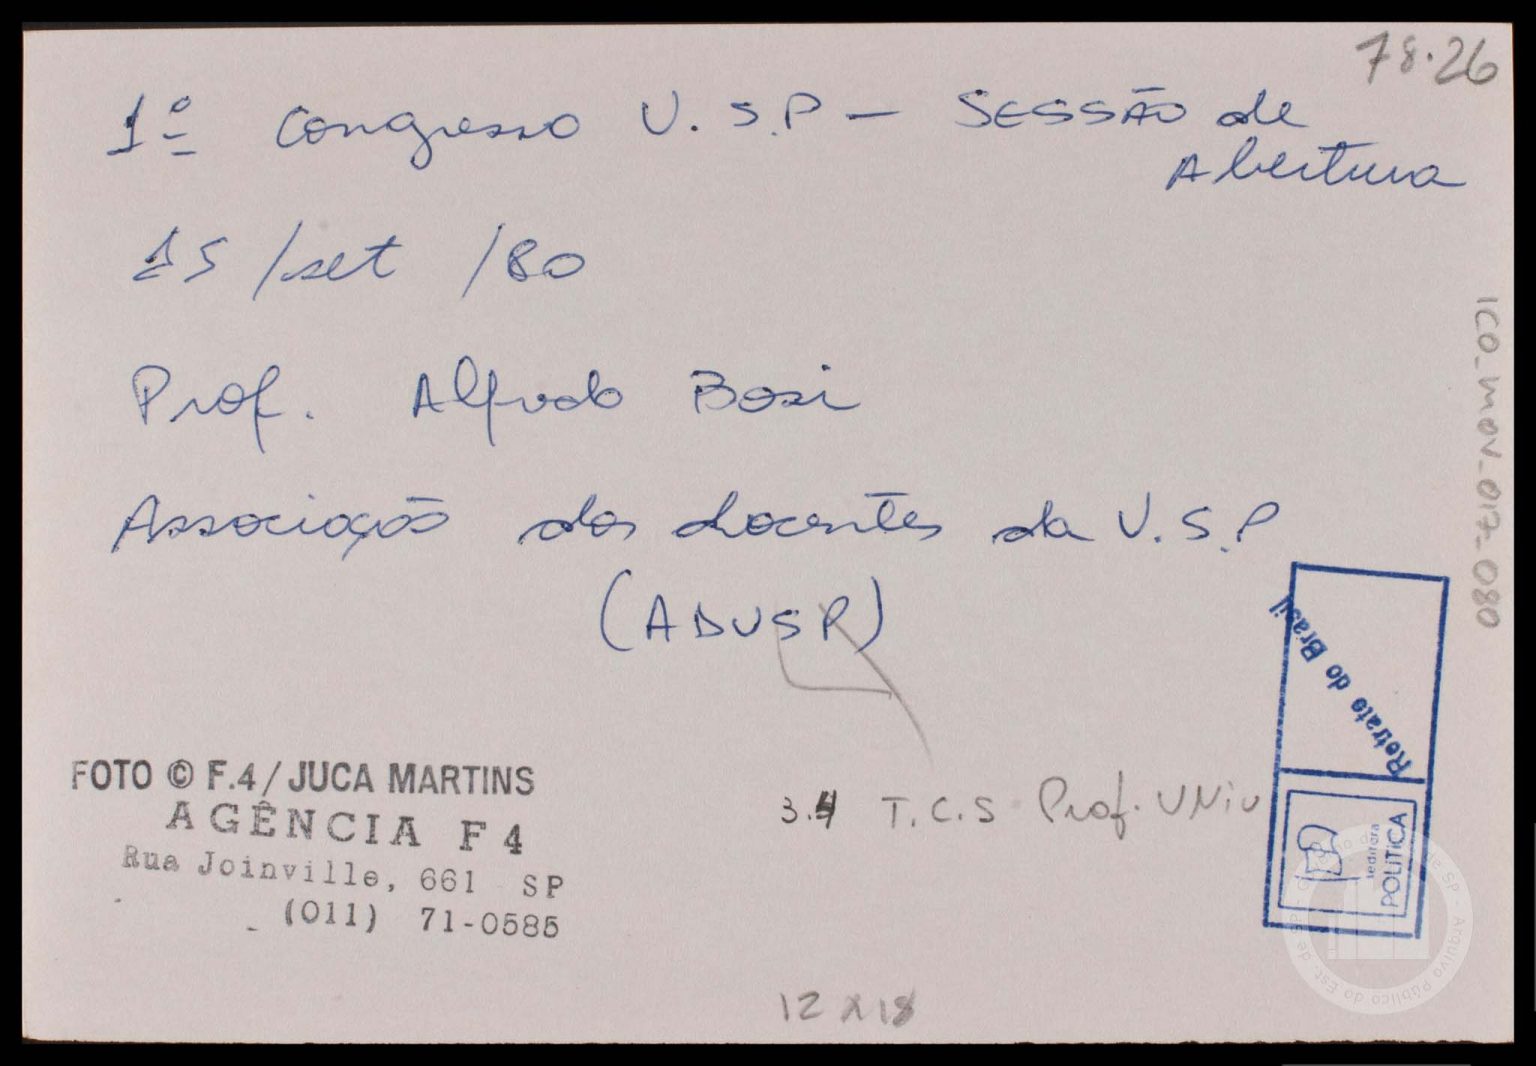 78.26
1º Congresso U.S.P - SESSÃO de
Abertura
15/set/80
Prof. Alfredo Bosi
Associação dos docentes da U.S.P
(ADUSP)
ICO_MOV_017_080
Retrato do Brasil
editora
POLÍTICA
FOTO © F.4/JUCA MARTINS
AGÊNCIA F4
Rua Joinville, 661 SP
(011) 71-0585
3.4 T.C.S Prof. UNiv
12 x 18
Arquivo Público do Est. de